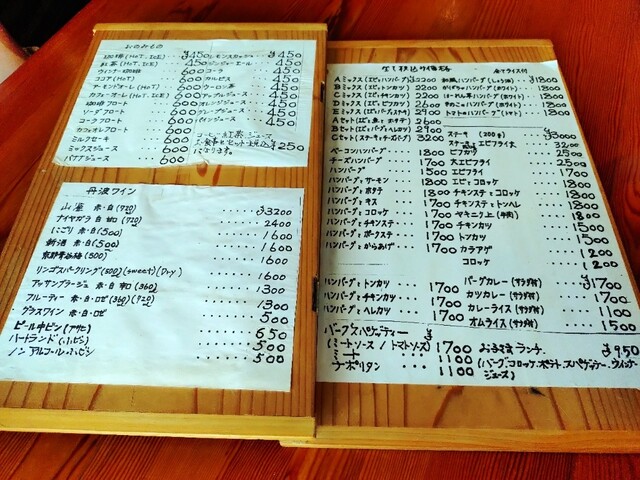 おのみもの
珈琲(HOT、ICE) ¥450
紅茶(HOT、ICE) 450
ウィンナー珈琲 600
ココア(HOT) 600
アーモンドオーレ(HOT) 600
カフェ・オーレ(HOT、ICE) 600
珈琲フロート 600
ソーダフロート 600
コーラフロート 600
カフェオレフロート 600
ミルクセーキ 600
ミックスジュース 600
バナナジュース 600
レモンスカッシュ ¥450
ジンジャーエール 450
コーラ 450
カルピス 450
ウーロン茶 450
アップルジュース 450
オレンジジュース 450
グレープジュース 450
パインジュース 450
コーヒー、紅茶、ジュース
お食事とセット 250
になります。
丹波ワイン
山崖 赤・白(720) ¥3200
ナイヤガラ 白 甘口(720) 2400
にごり 赤・白(500) 1600
新酒 赤・白(500) 1600
(500) 1600
リンゴスパークリング(500)(sweet)(Dry) 1600
アッサンブラージュ 赤・白 辛口(360) 1300
フルーティー 赤・白・ロゼ(360)(720) 1300
グラスワイン 赤・白・ロゼ 500
ビール中ビン(アサヒ) 650
ハートランド(小ビン) 500
ノンアルコール(小ビン) 500
全て税込み価格
Aミックス(エビとハンバーグ) ¥2200
Bミックス(エビとトンカツ) 2200
Cミックス(エビとチキンカツ) 2200
Dミックス(エビとビフカツ) 2600
Eミックス(エビとステーキ) 2900
Aセット 2600
Bセット 2900
Cセット(ステーキとチーズハンバーグ) 2900
ベーコンハンバーグ 1700
チーズハンバーグ 1700
ハンバーグ 1500
ハンバーグとサーモン 1800
ハンバーグとホタテ 1800
ハンバーグとキス 1700
ハンバーグとコロッケ 1700
ハンバーグとチキンステーキ 1700
ハンバーグとポークステーキ 1700
ハンバーグとからあげ 1700
ハンバーグとトンカツ 1700
ハンバーグとチキンカツ 1700
ハンバーグとヘレカツ 1700
全てライス付
和風ハンバーグ(しょうゆ味) ¥1800
きのこのハンバーグ(ホワイト) 1800
ほーれん草ハンバーグ(ホワイト) 1800
トマトのハンバーグ 1800
ステーキ (200g) ¥3000
ステーキとエビフライ 3200
ビフカツ 2500
大エビフライ 2500
エビフライ 1700
エビとコロッケ 1800
チキンステとコロッケ 1800
チキンステとトンヘレ 1800
ヤキニク(牛肉) 1800
チキンカツ 1500
トンカツ 1500
カラアゲ 1200
コロッケ 1200
バーグカレー(サラダ付) ¥1700
カツカレー(サラダ付) 1700
カレーライス(サラダ付) 1100
オムライス(サラダ付) 1500
バーグスパゲッティー
(ミートソース/トマトソース) 1700
ミート 1100
ナポリタン 1100
お子さまランチ ¥950
(バーグ、コロッケ、ポテト、スパゲッティー、ウインナー
ジュース)